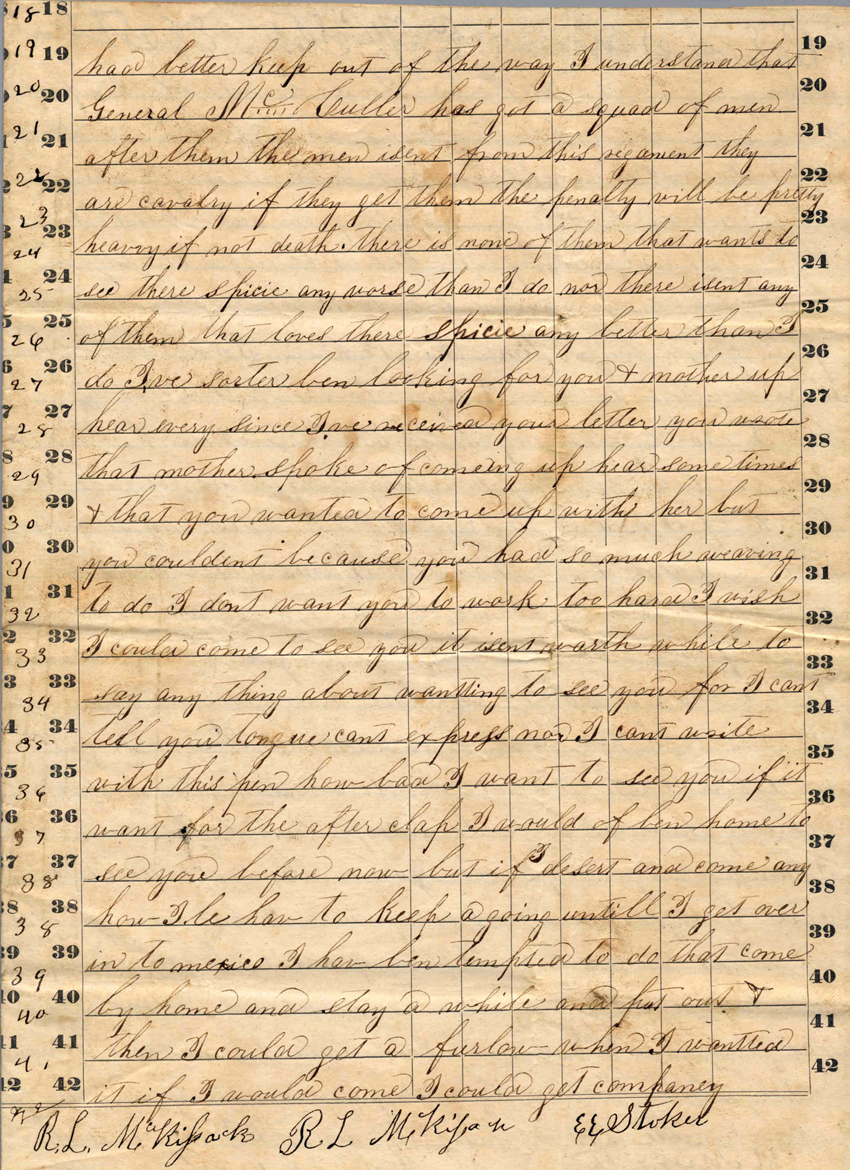 18 18
19 19 had better keep out of the way I understand that 19
20 20 General Mc Culler has got a squad of men 20
21 21 after them the men isent from this regament they 21
22 22 are cavalry if they get them the penalty will be pretty 22
23 23 heavvy if not death. there is none of them that wants to 23
24 24 see there spicie any worse than I do nor there isent any 24
25 25 of them that loves there spicie any better than I 25
26 26 do I,ve sorter ben looking for you & mother up 26
27 27 hear every since I,ve received your letter you wrote 27
28 28 that mother spoke of comeing up hear some times 28
29 29 & that you wanted to come up with her but 29
30 30 you couldent because you had so much weaving 30
31 31 to do I dont want you to work too hard I wish 31
32 32 I could come to see you it isent warth while to 32
33 33 say any thing about wantting to see you for I cant 33
34 34 tell you tongue cant express nor I cant write 34
35 35 with this pen how bad I want to see you if it 35
36 36 want for the after clap I would of ben home to 36
37 37 see you before now but if I desert and come any 37
38 38 how I,le hav to keep a going untill I get over 38
38 39 39 in to mexico I hav ben tempted to do that come 39
40 40 by home and stay a while and put out & 40
41 41 then I could get a furlow when I wantted 41
42 42 it if I would come I could get companey 42
R. L. McKissack R L McKissan EE Stoker